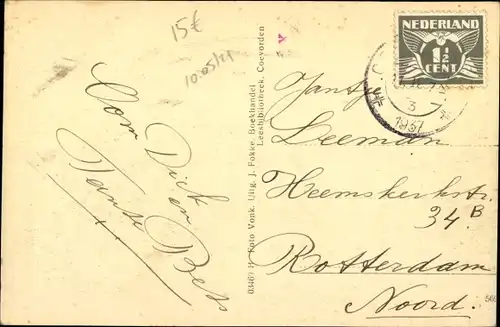 15€
10.05/21
Oom Dick
en
Tante Bess
Foto Vonk. Uitg. J. Fokke, Boekhandel
Leesbibliotheek, Coevorden
NEDERLAND
1½
CENT
3
1937
Jantje
Leeman
Heemskerkstr.
34 B
Rotterdam
Noord.